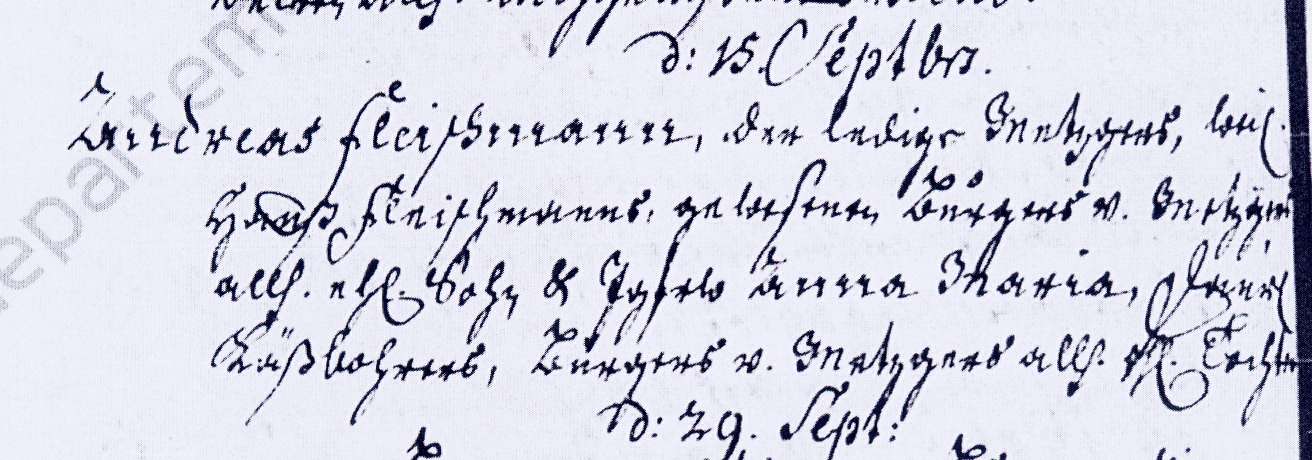 d: 15. Septbr.
Andreas Fleischmann, der ledige Metzger, weil.
Hanß Fleischmanns, gewesenen Burgers v. Metzgers
allh. ehl. Sohn & Jgfrw Anna Maria,
Käßbohrers, Burgers v. Metzgers allh. ehl. Tochter
d: 29. Sept: